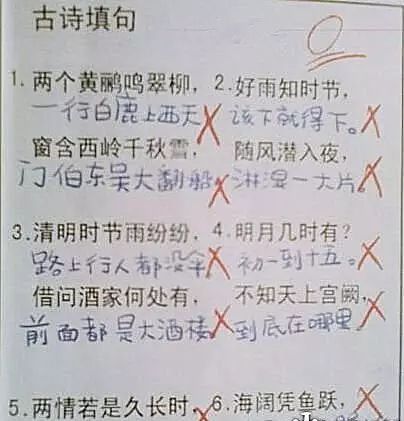 古诗填句
1. 两个黄鹂鸣翠柳，2. 好雨知时节，
一行白鹿上西天 该下就得下。
窗含西岭千秋雪， 随风潜入夜，
门伯东吴大翻船 淋湿一大片。
3. 清明时节雨纷纷，4. 明月几时有？
路上行人都没伞 初一到十五。
借问酒家何处有， 不知天上宫阙，
前面都是大酒楼 到底在哪里
5. 两情若是久长时， 6. 海阔凭鱼跃，